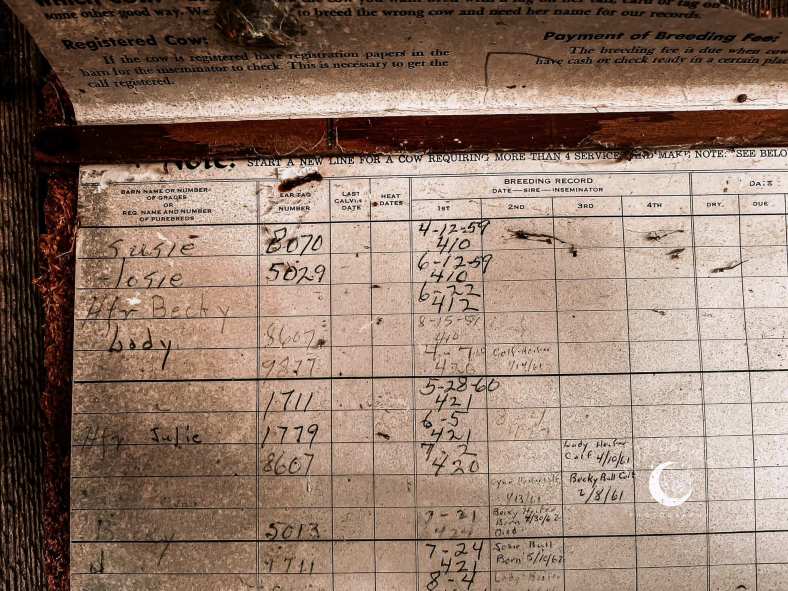 some other good way. We to breed the wrong cow and need her name for our records.
Registered Cow:
If the cow is registered have registration papers in the
barn for the inseminator to check. This is necessary to get the
calf registered.
Payment of Breeding Fee:
The breeding fee is due when cow
have cash or check ready in a certain place
Note: START A NEW LINE FOR A COW REQUIRING MORE THAN 4 SERVICES AND MAKE NOTE: "SEE BELO
BARN NAME OR NUMBER
OF GRADES
OR
REG. NAME AND NUMBER
OF PUREBREDS
EAR TAG
NUMBER
LAST
CALVING
DATE
HEAT
DATES
BREEDING RECORD
DATE—SIRE—INSEMINATOR
1ST 2ND 3RD 4TH
DATE
DRY. DUE
Susie 8070 4-12-59
410
Josie 5029 6-12-59
410
Hfr Becky 6-22
412
Lady 8607 8-15-59
410
9827
1711 5-28-60
421
Hfr Julie 1779 6-5
421
8607 7-2
420
Lady Heifer
Calf 4/10/61
Becky Bull Calf
2/8/61
5013 7-21
Becky Heifer
Born 4/30/62
Died
7-24
421
Susie Bull
Born 5/10/62
8-4
Lady Heifer